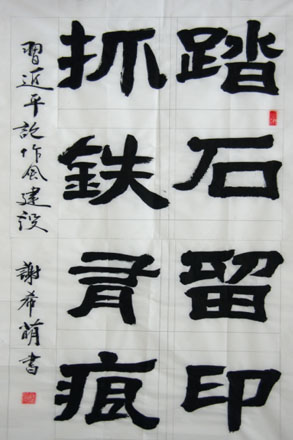 踏石留印
抓鉄有痕
習近平 作风建设 謝希萌書